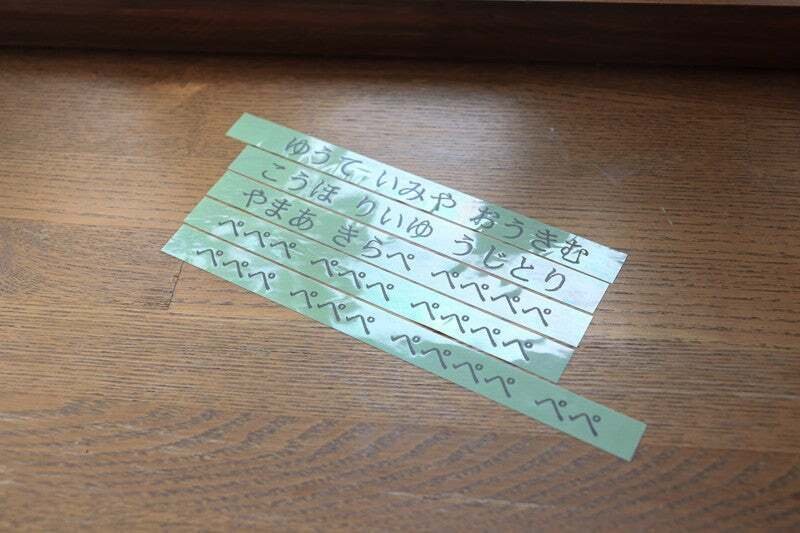 ゆうて いみや おうきむ
こうほ りいゆ うじとり
やまあ きらぺ ぺぺぺぺ
ぺぺぺ ぺぺぺ ぺぺぺぺ
ぺぺぺ ぺぺぺ ぺぺぺぺ ぺぺ